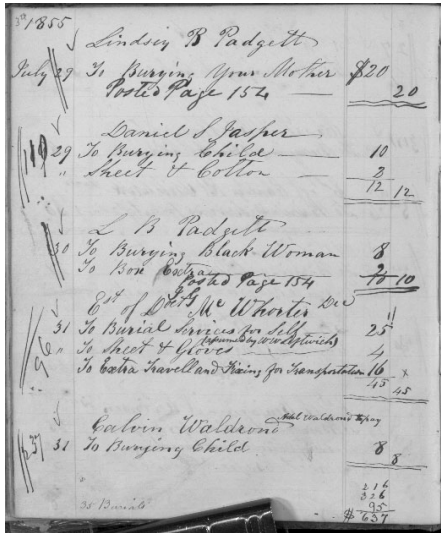 1855
Lindsey B Padgett
July 29 To Burying Your Mother $20
Posted Page 154 20
Daniel S Jasper
119 29 To Burying Child 10
" Sheet & Cotton 2
12 12
L B Padgett
30 To Burying Black Woman 8
To Box Extra 2
Posted Page 154 10 10
Est of Mc Whorter Dec
31 To Burial Services for Self 25
96 " To Sheet & Gloves 4
To Extra Travell and Fixing for Transportation 16
45 45
Calvin Waldrond
31 To Burying Child 8
8
216
326
95
35 Burials $637